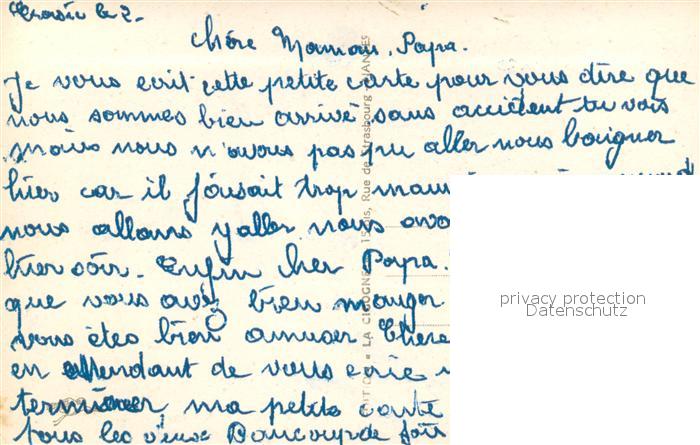 Croisic le 2.
Chère Maman, Papa.
Je vous ecrit cette petite carte pour vous dire que
nous sommes bien arrivé sans accident tu vois
mais nous n'avons pas pu aller nous baigner
hier car il faisait trop
nous allons y aller nous avo
hier soir. Enfin cher Papa.
que vous avez bien manger
vous êtes bien amuser Chere
en attendant de vous ecrie
terminer ma petite carte
tous les deux Beaucoup de fois
LA CIGOGNE
Rue de Strasbourg - NANTES
privacy protection
Datenschutz